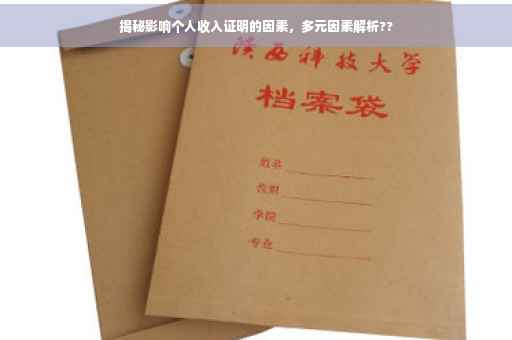 揭秘影响个人收入证明的因素，多元因素解析??
陕西科技大学
档案袋
姓名
学院
专业